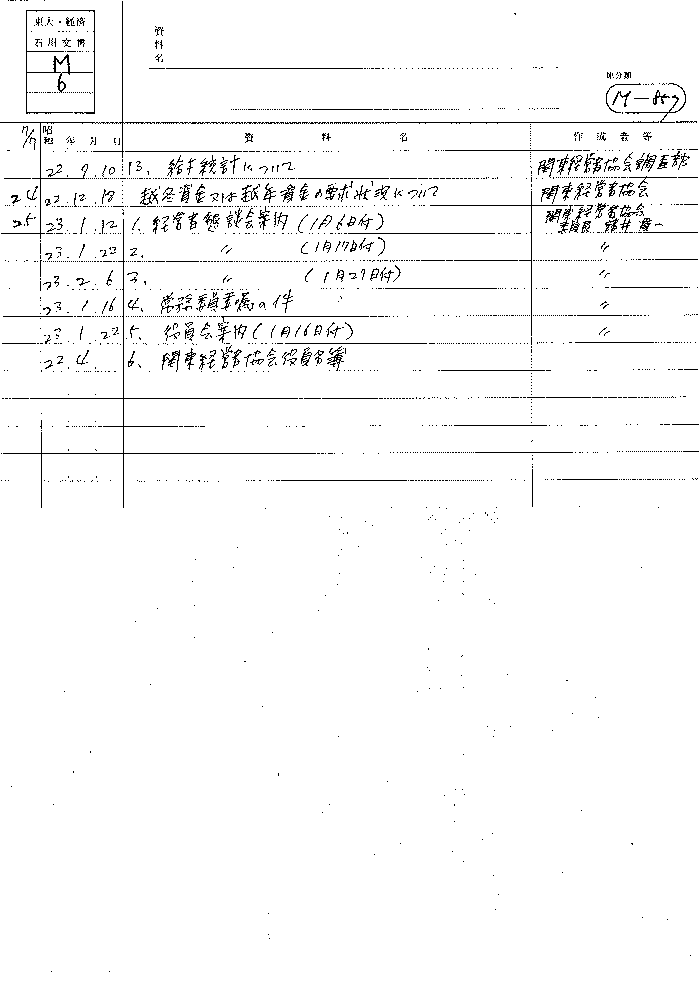 東大・経済
石川文書
M
6
資料名
原分類
M-857
昭和 年 月 日 資料名 作成者等
22. 9. 10 13. 給与統計について 関東経営者協会調査部
24 22. 12. 18 越冬資金又は越年資金の要求状況について 関東経営者協会
25 23. 1. 12 1. 経営者懇談会案内(1月6日付) 関東経営者協会
委員長 諸井貫一
23. 1. 23 2. 〃 (1月17日付) 〃
23. 2. 6 3. 〃 (1月27日付) 〃
23. 1. 16 4. 常務委員委嘱の件 〃
23. 1. 22 5. 役員会案内(1月16日付) 〃
22. 4. 6. 関東経営者協会役員名簿